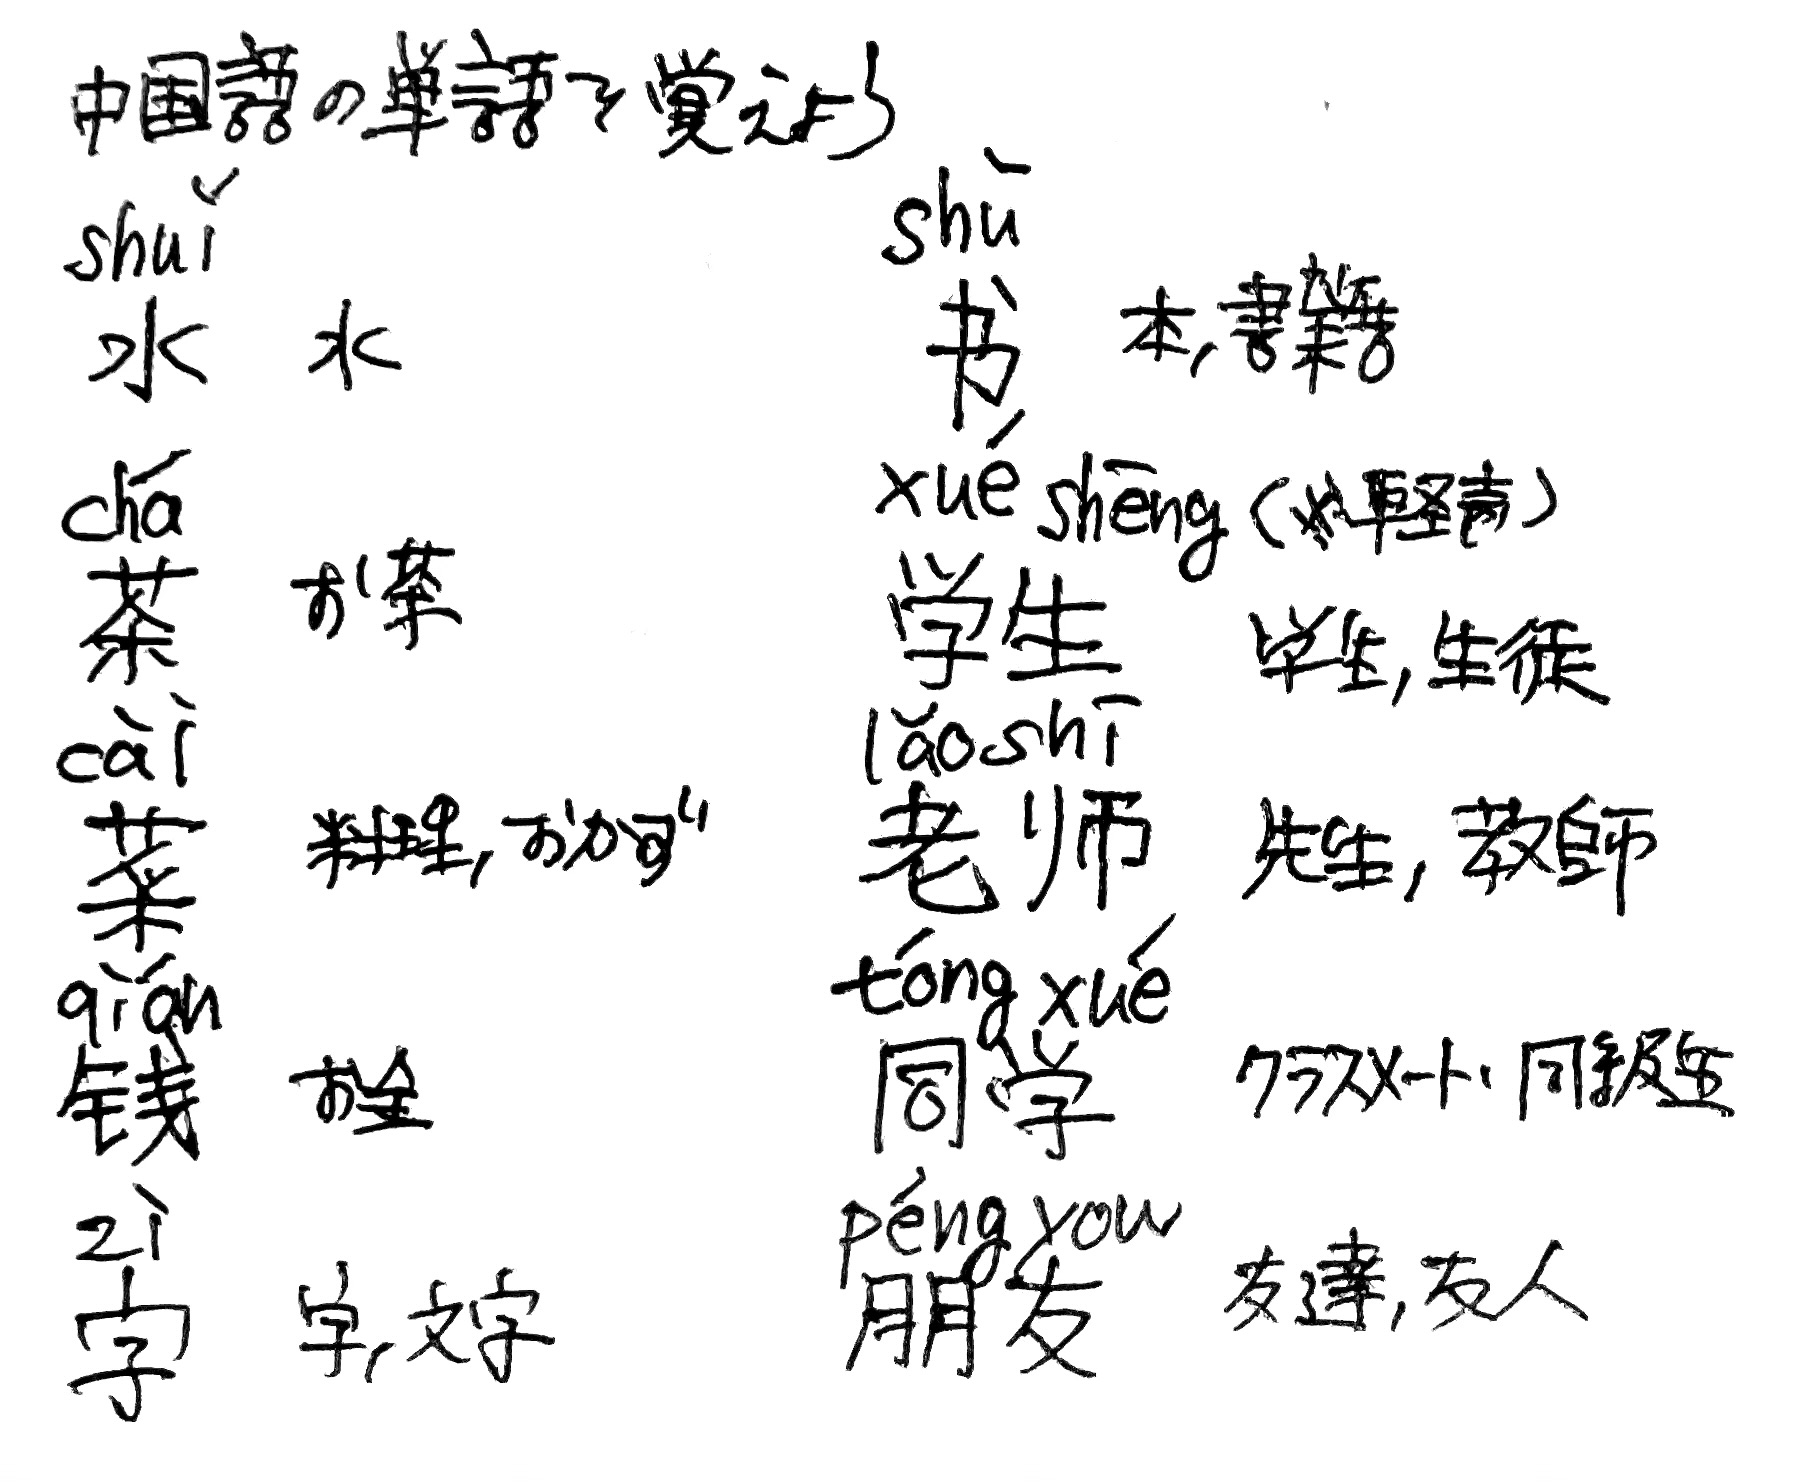 中国語の単語を覚えよう
shuǐ
水 水
chá
茶 お茶
cài
菜 料理,おかず
qián
钱 お金
zì
字 字,文字
shū
书 本,書籍
xué shēng (※軽声)
学生 学生,生徒
lǎoshī
老师 先生,教師
tóng xué
同学 クラスメート,同級生
péng you
朋友 友達,友人